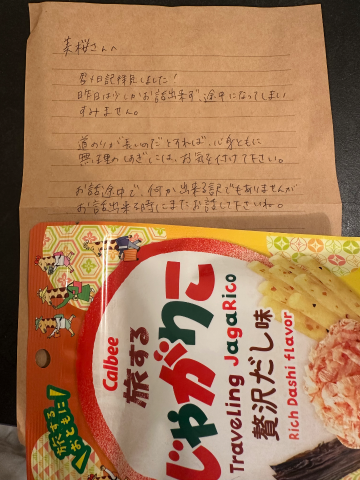 美桜さんへ
昨日は少ししかお話出来ず、途中になってしまい
すみません。
道のりが長いのだとすれば、心身ともに
無理のしすぎには、お気を付けて下さい。
お話途中で、何か出来る訳でもありませんが
お話出来る時にまたお話して下さいね。
Calbee
旅する
じゃがりこ
Traveling JagaRico
贅沢だし味
Rich Dashi flavor
旅する
おともに!